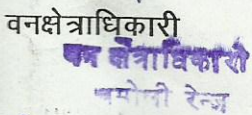 वनक्षेत्राधिकारी
वन क्षेत्राधिकारी
चमोली रेन्ज